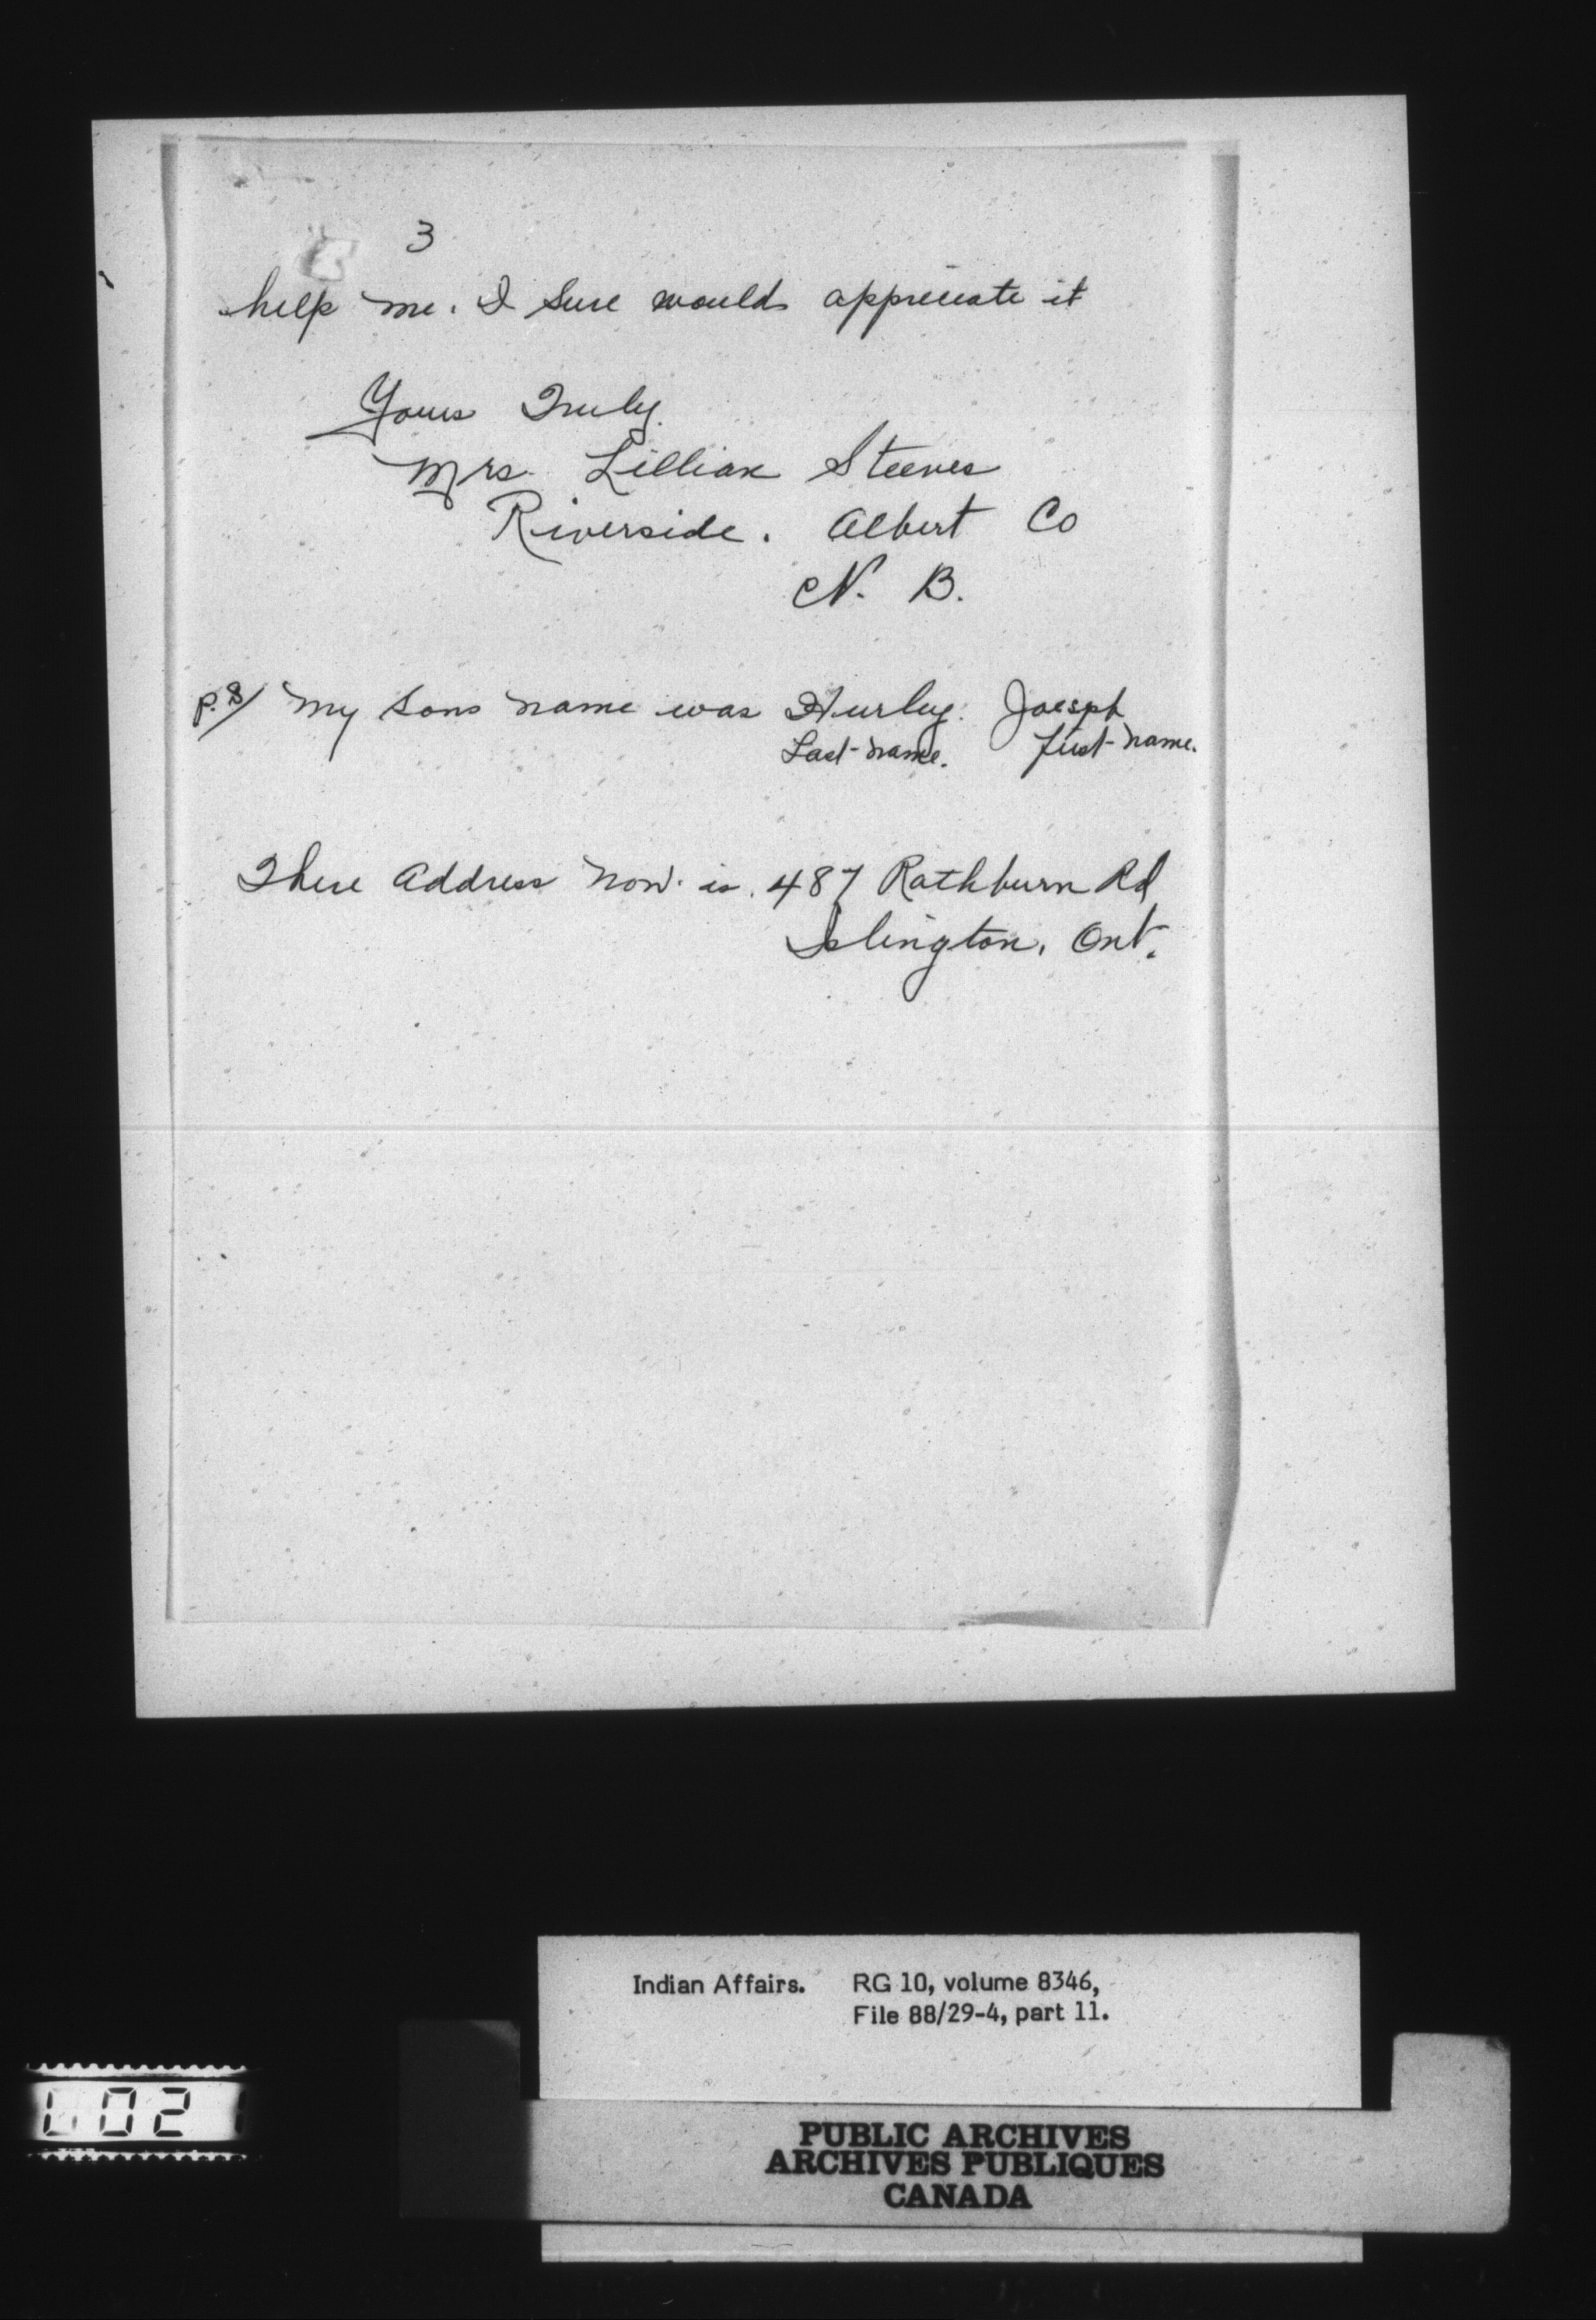 3
help me. I sure would appreciate it
Yours Truly.
Mrs. Lillian Steeves
Riverside. Albert Co
N. B.
P.S/ My sons name was Hurley. Joesph
Last-name. first-name.
There Address now. is. 487 Rathburn Rd
Islington, Ont.
Indian Affairs. RG 10, volume 8346,
File 88/29-4, part 11.
PUBLIC ARCHIVES
ARCHIVES PUBLIQUES
CANADA